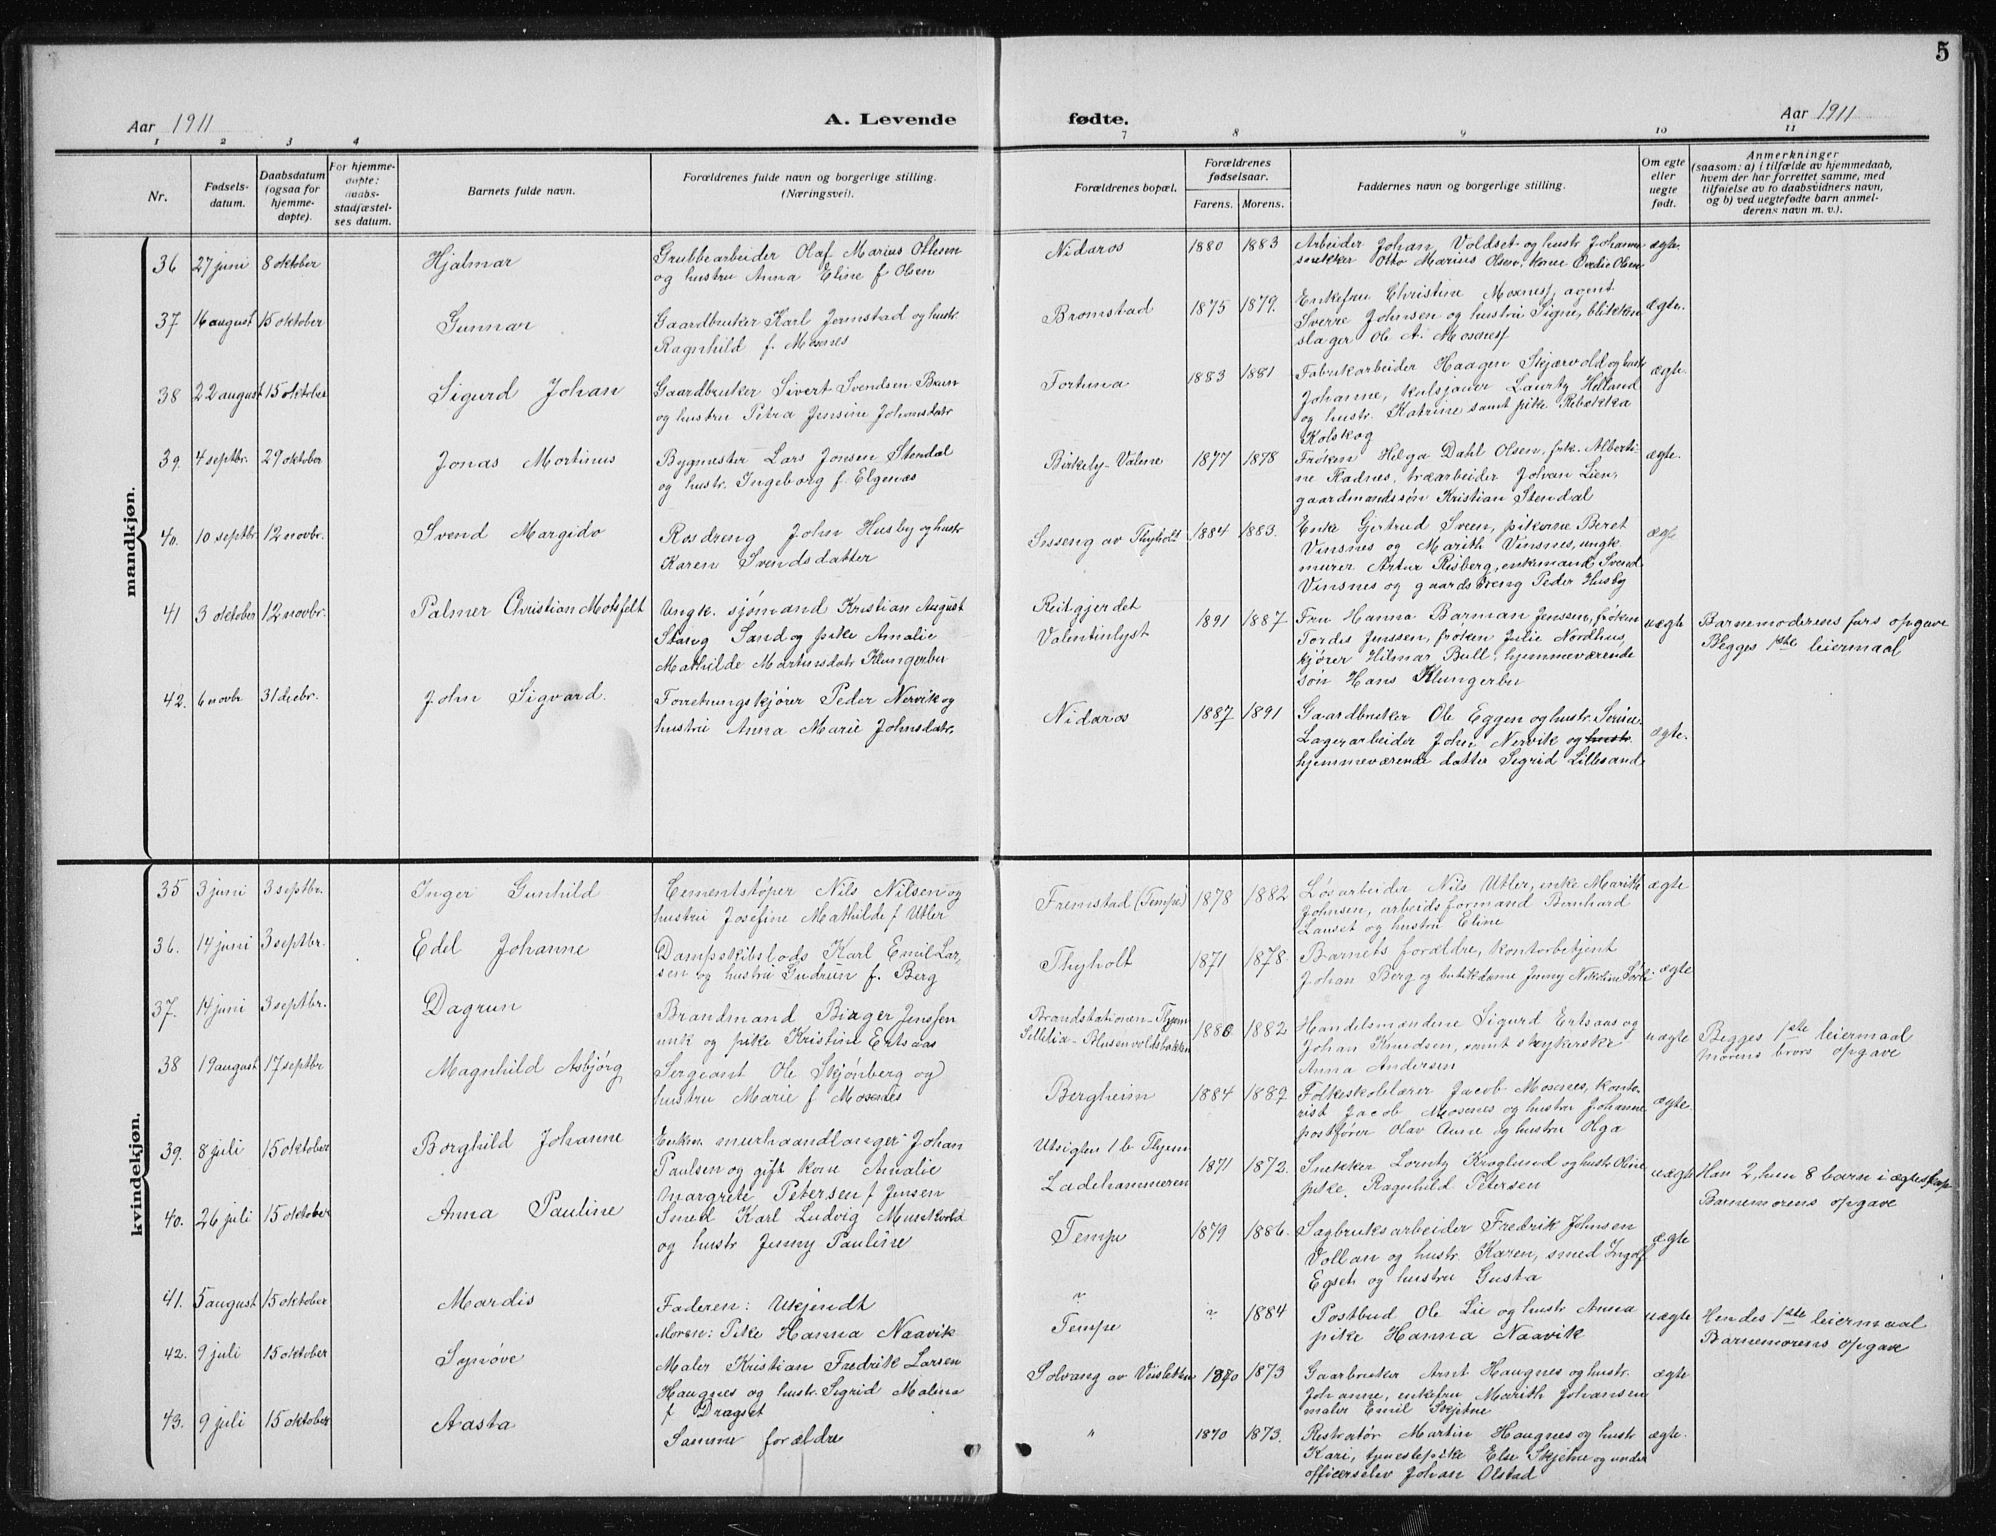 5
Aar 1911
A. Levende
fødte.
Aar 1911
1 2 3 4
7 8 9 10 11
Nr.
Fødsels-
datum.
Daabsdatum
(ogsaa for
hjemme-
døpte).
For hjemme-
døpte:
daabs-
stadfæstel-
ses datum.
Barnets fulde navn.
Forældrenes fulde navn og borgerlige stilling.
(Næringsvei).
Forældrenes bopæl.
Forældrenes
fødselsaar.
Farens. Morens.
Faddernes navn og borgerlige stilling.
Om egte
eller
uegte
født.
Anmerkninger
(saasom: a) i tilfælde av hjemmedaab,
hvem der har forrettet samme, med
tilføielse av to daabsvidners navn,
og b) ved uegtefødte barn anmel-
derens navn m. v.).
mandkjøn.
36 27 juni 8 oktober Hjalmar
Grubbearbeider Olaf Marius Ottesen
og hustru Anna Eline f Olsen
Nidaros 1880 1883
Arbeider Johan Voldset og hustr Johanne
snekker Otto Marius Olsen, kone Ovedie Olsen
ægte.
37 16 august 15 oktober Gunnar
Gaardbruker Karl Jermstad og hustr
Ragnhild f. Mosenes
Bromstad 1875 1879.
Enkefru Christine Mosnes, agent
Sverre Johnsen og hustru Signe, blikken
slager Ole A. Mosnes
ægte.
38 22 august 15 oktober Sigurd Johan
Gaardbruker Sivert Svendsen Brun
og hustru Petra Jensine Johansdatr
Fortuna 1883 1881
Fabrikarbeider Haagen Skjærvold og hustr
Johanne, kulsjauer Lauritz Helland
og hustr. Katrine samt pike Rebekka
Kolskog
ægte.
39. 4 septbr. 29 oktober Jonas Martinus
Bygmester Lars Jonsen Stendal
og hustr. Ingeborg f. Elgenæs
Birkely-Valene 1877 1878
Frøken Helga Dahl Olsen, frk. Alberti-
ne Radnes, træarbeider Johan Lien,
gaardmandssøn Kristian Stendal
ægte.
40. 10 septbr. 12 novbr. Svend Margido
Rosdreng John Husby og hustr
Karen Svendsdatter
Sisseng av Thyholt 1884 1883.
Enke Gjertrud Sveen, pikerne Beret
Vinsnes og Marith Vinsnes, ungk
murer Artur Risberg, enkemand Svend
Vinsnes og gaardsdreng Peder Husby
ægte
41 3 oktober 12 novbr. Palmer Christian Motsfelt
Ungk. sjømand Kristian August
Stang Sand og pike Amalie
Mathilde Martinsdatr Klungerbu
Reitgjerdet
Valentinlyst
1891 1887
Fru Hanna Barman Jensen, frøken
Tordis Jenssen, frøken Julie Nordhus,
kjører Hilmar Bull, hjemmeværende
søn Hans Klungerbu
uægte
Barnemoderens fars opgave
Begges 1ste leiermaal
42. 6 novbr 31 decbr. John Sigvard.
Forretningskjører Peder Nervik og
hustru Anna Marie Johnsdatr.
Nidaros 1887 1891
Gaardbruker Ole Eggen og hustr. Serine.
Lagerarbeider John Nervik og hustr.
hjemmeværende datter Sigrid Lillesand
ægte.
kvindekjøn.
35 3 juni 3 septbr. Inger Gunhild
Cementstøper Nils Nilsen og
hustru Josefine Mathilde f Utler
Fremstad (Tempe) 1878 1882
Løsarbeider Nils Utler, enke Marith
Johnsen, arbeidsformand Bernhard
Lauset og hustru Eline
ægte.
36. 14 juni 3 septbr. Edel Johanne
Dampskibslods Karl Emil Lar,
sen og hustru Gudrun f. Berg
Thyholt 1871 1878.
Barnets forældre, kontorbetjent
Johan Berg og butikdame Jenny Nikoline Sorte
ægte
37. 14 juni 3 septbr. Dagrun
Brandmand Birger Jenssen
unk og pike Kristine Ertsaas
Brandstationen-Thjem
1880 1882
Handelsmændene Sigurd Ertsaas og
Johan Knudsen, samt strykerske
Anna Andersen
uægte
Begges 1ste leiermaal
Morens brors opgave
38 19 august 17 septbr Magnhild Asbjørg
Sergeant Ole Skjønberg og
hustru Marie f Mosenes
Bergheim 1884 1882
Folkeskolelærer Jacob Mosenes, konto-
rist Jacob Mosenes og hustru Johanne
postfører Olav Aune og hustru Olga
ægte.
39. 8 juli 15 oktober Borghild Johanne
Enkem. murhaandlanger Johan
Paulsen og gift kone Amalie
Margrete Petersen f Jensen
Utsigten 1 b Thjem
Ladehammeren
1871 1872.
Snekker Lorntz Kroglund og hustr Oline
pike Ragnhild Petersen
uægte
Han 2, hun 8 barn i ægteskap
Barnemorens opgave
40. 26 juli 15 oktober Anna Pauline
Smed Karl Ludvig Muskvold
og hustr Jenny Pauline
Tempe 1879 1886.
Sagbruksarbeider Fredrik Johnsen
Vollan og hustr. Karen, smed Ingolf
Egset og hustru Gusta
ægte
41. 5 august 15 oktober Mardis
Faderen: Ukjendt
Moren: Pike Hanna Naavik
"
Tempe
" 1884
Postbud Ole Lie og hustr Anna
pike Hanna Naavik
uægte
Hendes 1ste leiermaal
Barnemorens opgave
42. 9 juli 15 oktober Synøve
Maler Kristian Fredrik Larsen
Haugnes og hustr. Sigrid Malena
f Dragset
Solvang av Veisletten 1870 1873
Gaarbruker Arnt Haugnes og hustr.
Johanne, enkefru Marith Johansen
maler Emil Skjetne
ægte
43. 9 juli 15 oktober Aasta
Samme forældre
" 1870 1873.
Restratør Martin Haugnes og hustr
Kari, tjenestepike Else Skjetne og under
officerselev Johan Olstad
ægte.